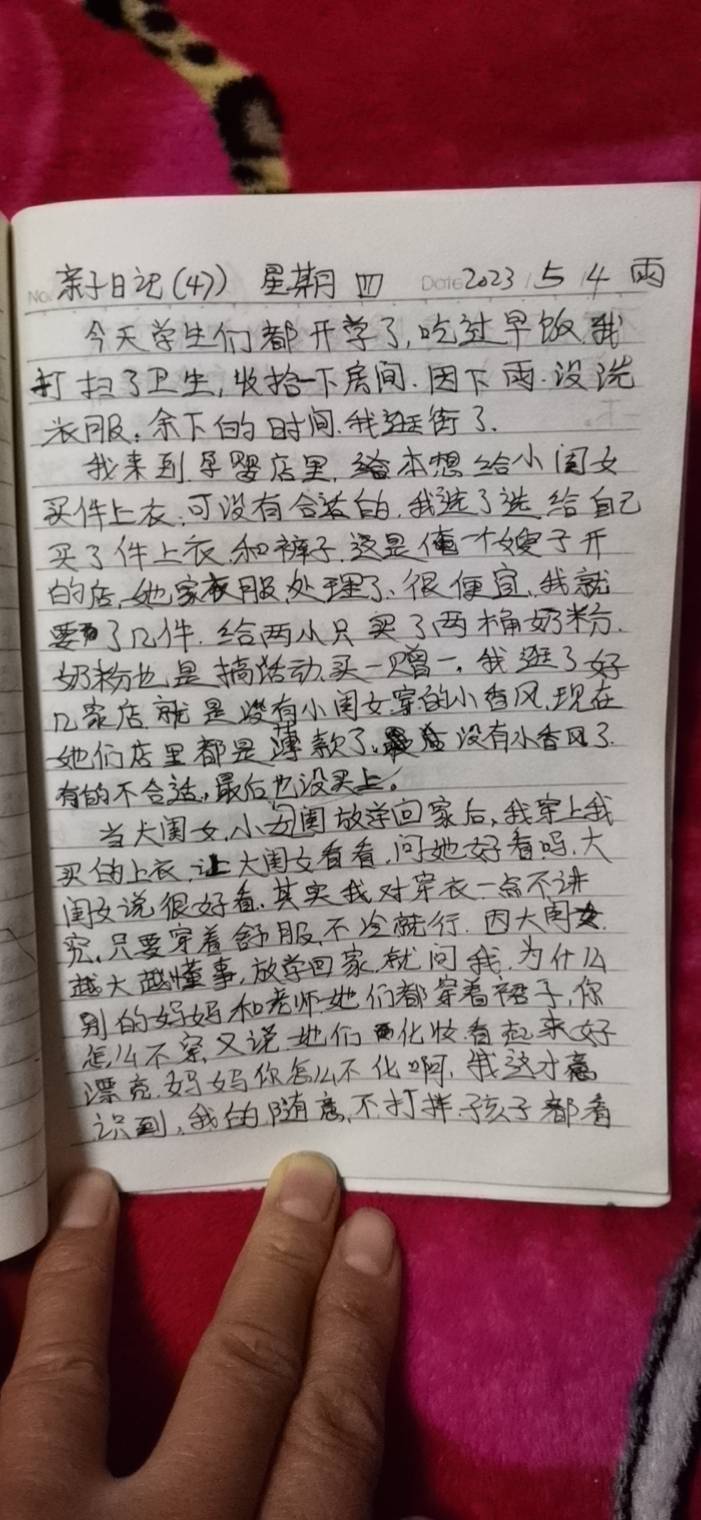 亲子日记(47) 星期四 Date 2023 5 4 雨
今天学生们都开学了,吃过早饭.我
打扫了卫生,收拾一下房间.因下雨.没洗
衣服.余下的时间.我逛街了.
我来到孕婴店里.本想给小闺女
买件上衣.可没有合适的.我选了选.给自己
买了件上衣.和裤子.这是俺一个嫂子开
的店.她家衣服处理了.很便宜.我就
要了几件.给两小只买了两桶奶粉.
奶粉也是搞活动.买一赠一.我逛了好
几家店.就是没有小闺女穿的小香风.现在
她们店里都是薄款了.没有小香风了.
有的不合适,最后也没买上。
当大闺女.小闺放学回家后,我穿上我
买的上衣.让大闺女看看.问她好看吗.大
闺女说很好看.其实我对穿衣一点不讲
究.只要穿着舒服.不冷就行.因大闺女.
越大越懂事,放学回家.就问我.为什么
别的妈妈和老师她们都穿着裙子,你
怎么不穿.又说她们化妆.看起来好
漂亮.妈妈你怎么不化啊.我这才意
识到,我的随意,不打拌.孩子都看